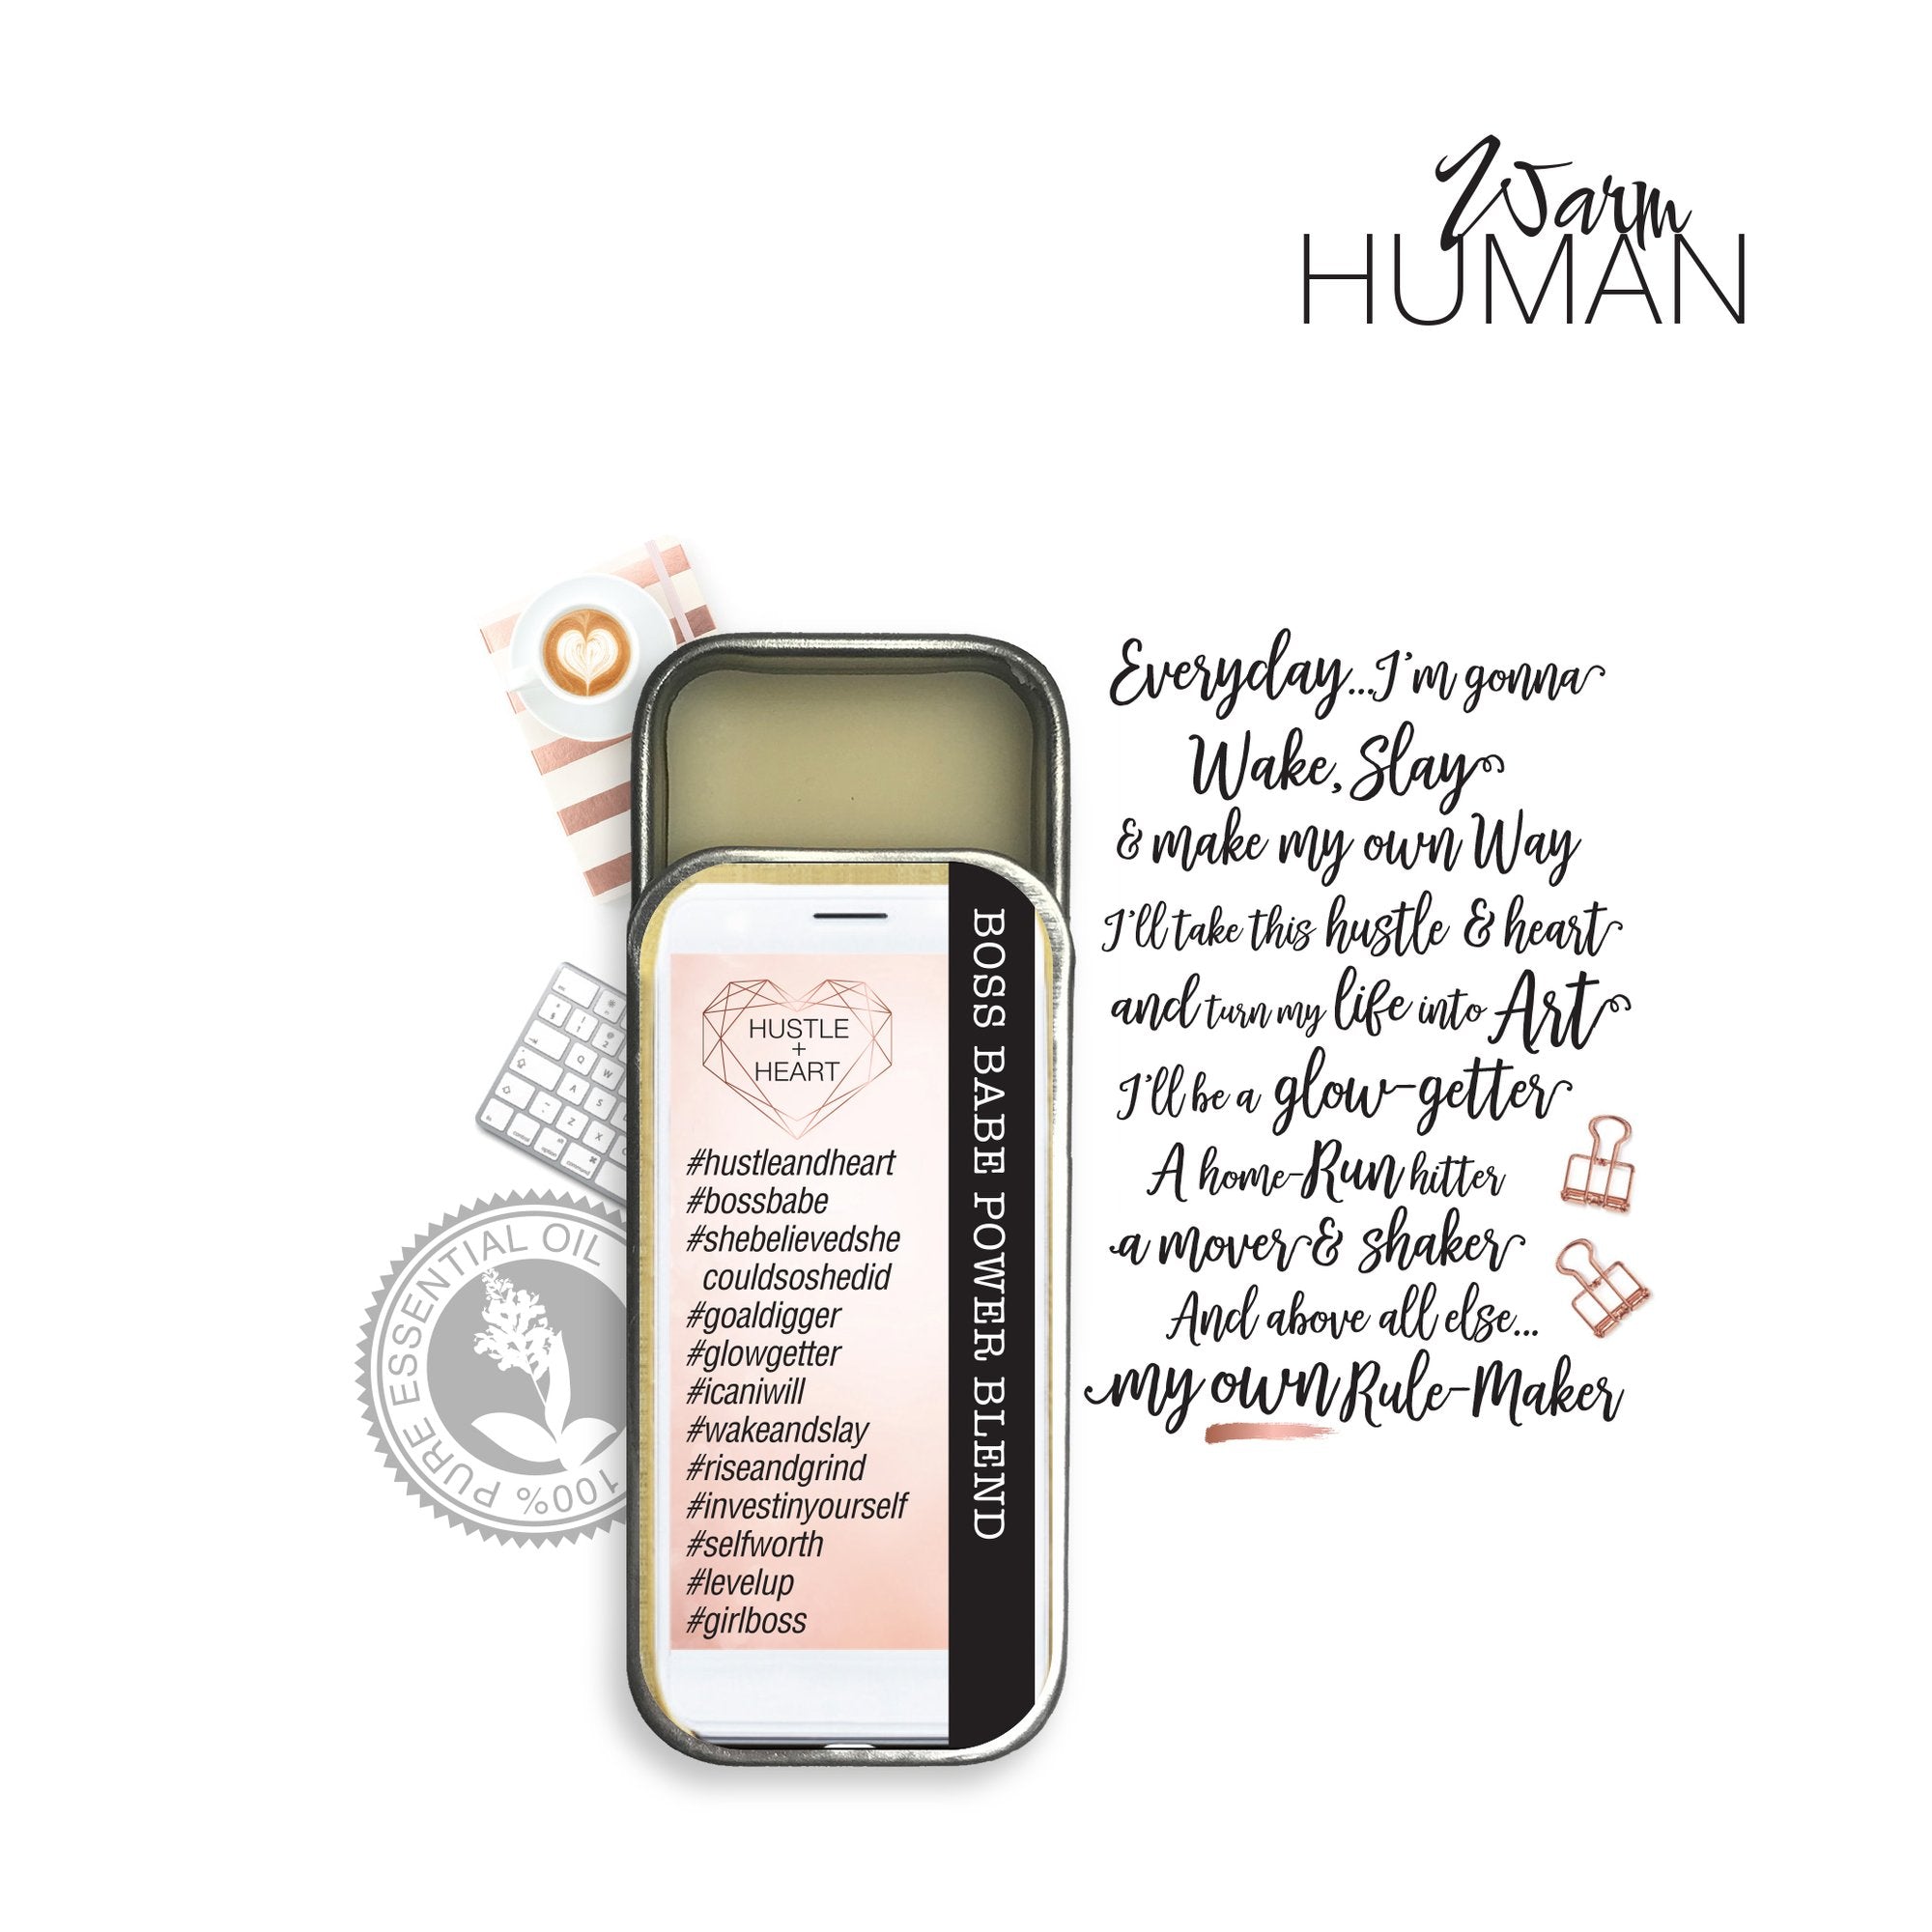 Warm
HUMAN
Everyday...I'm gonna
Wake, Slay
& make my own Way
I'll take this hustle & heart
and turn my life into Art
I'll be a glow-getter
A home-Run hitter
a mover & shaker
And above all else...
my own Rule-Maker
HUSTLE
+
HEART
#hustleandheart
#bossbabe
#shebelievedshe
couldsoshedid
#goaldigger
#glowgetter
#icaniwill
#wakeandslay
#riseandgrind
#investinyourself
#selfworth
#levelup
#girlboss
BOSS BABE POWER BLEND
100% PURE ESSENTIAL OIL